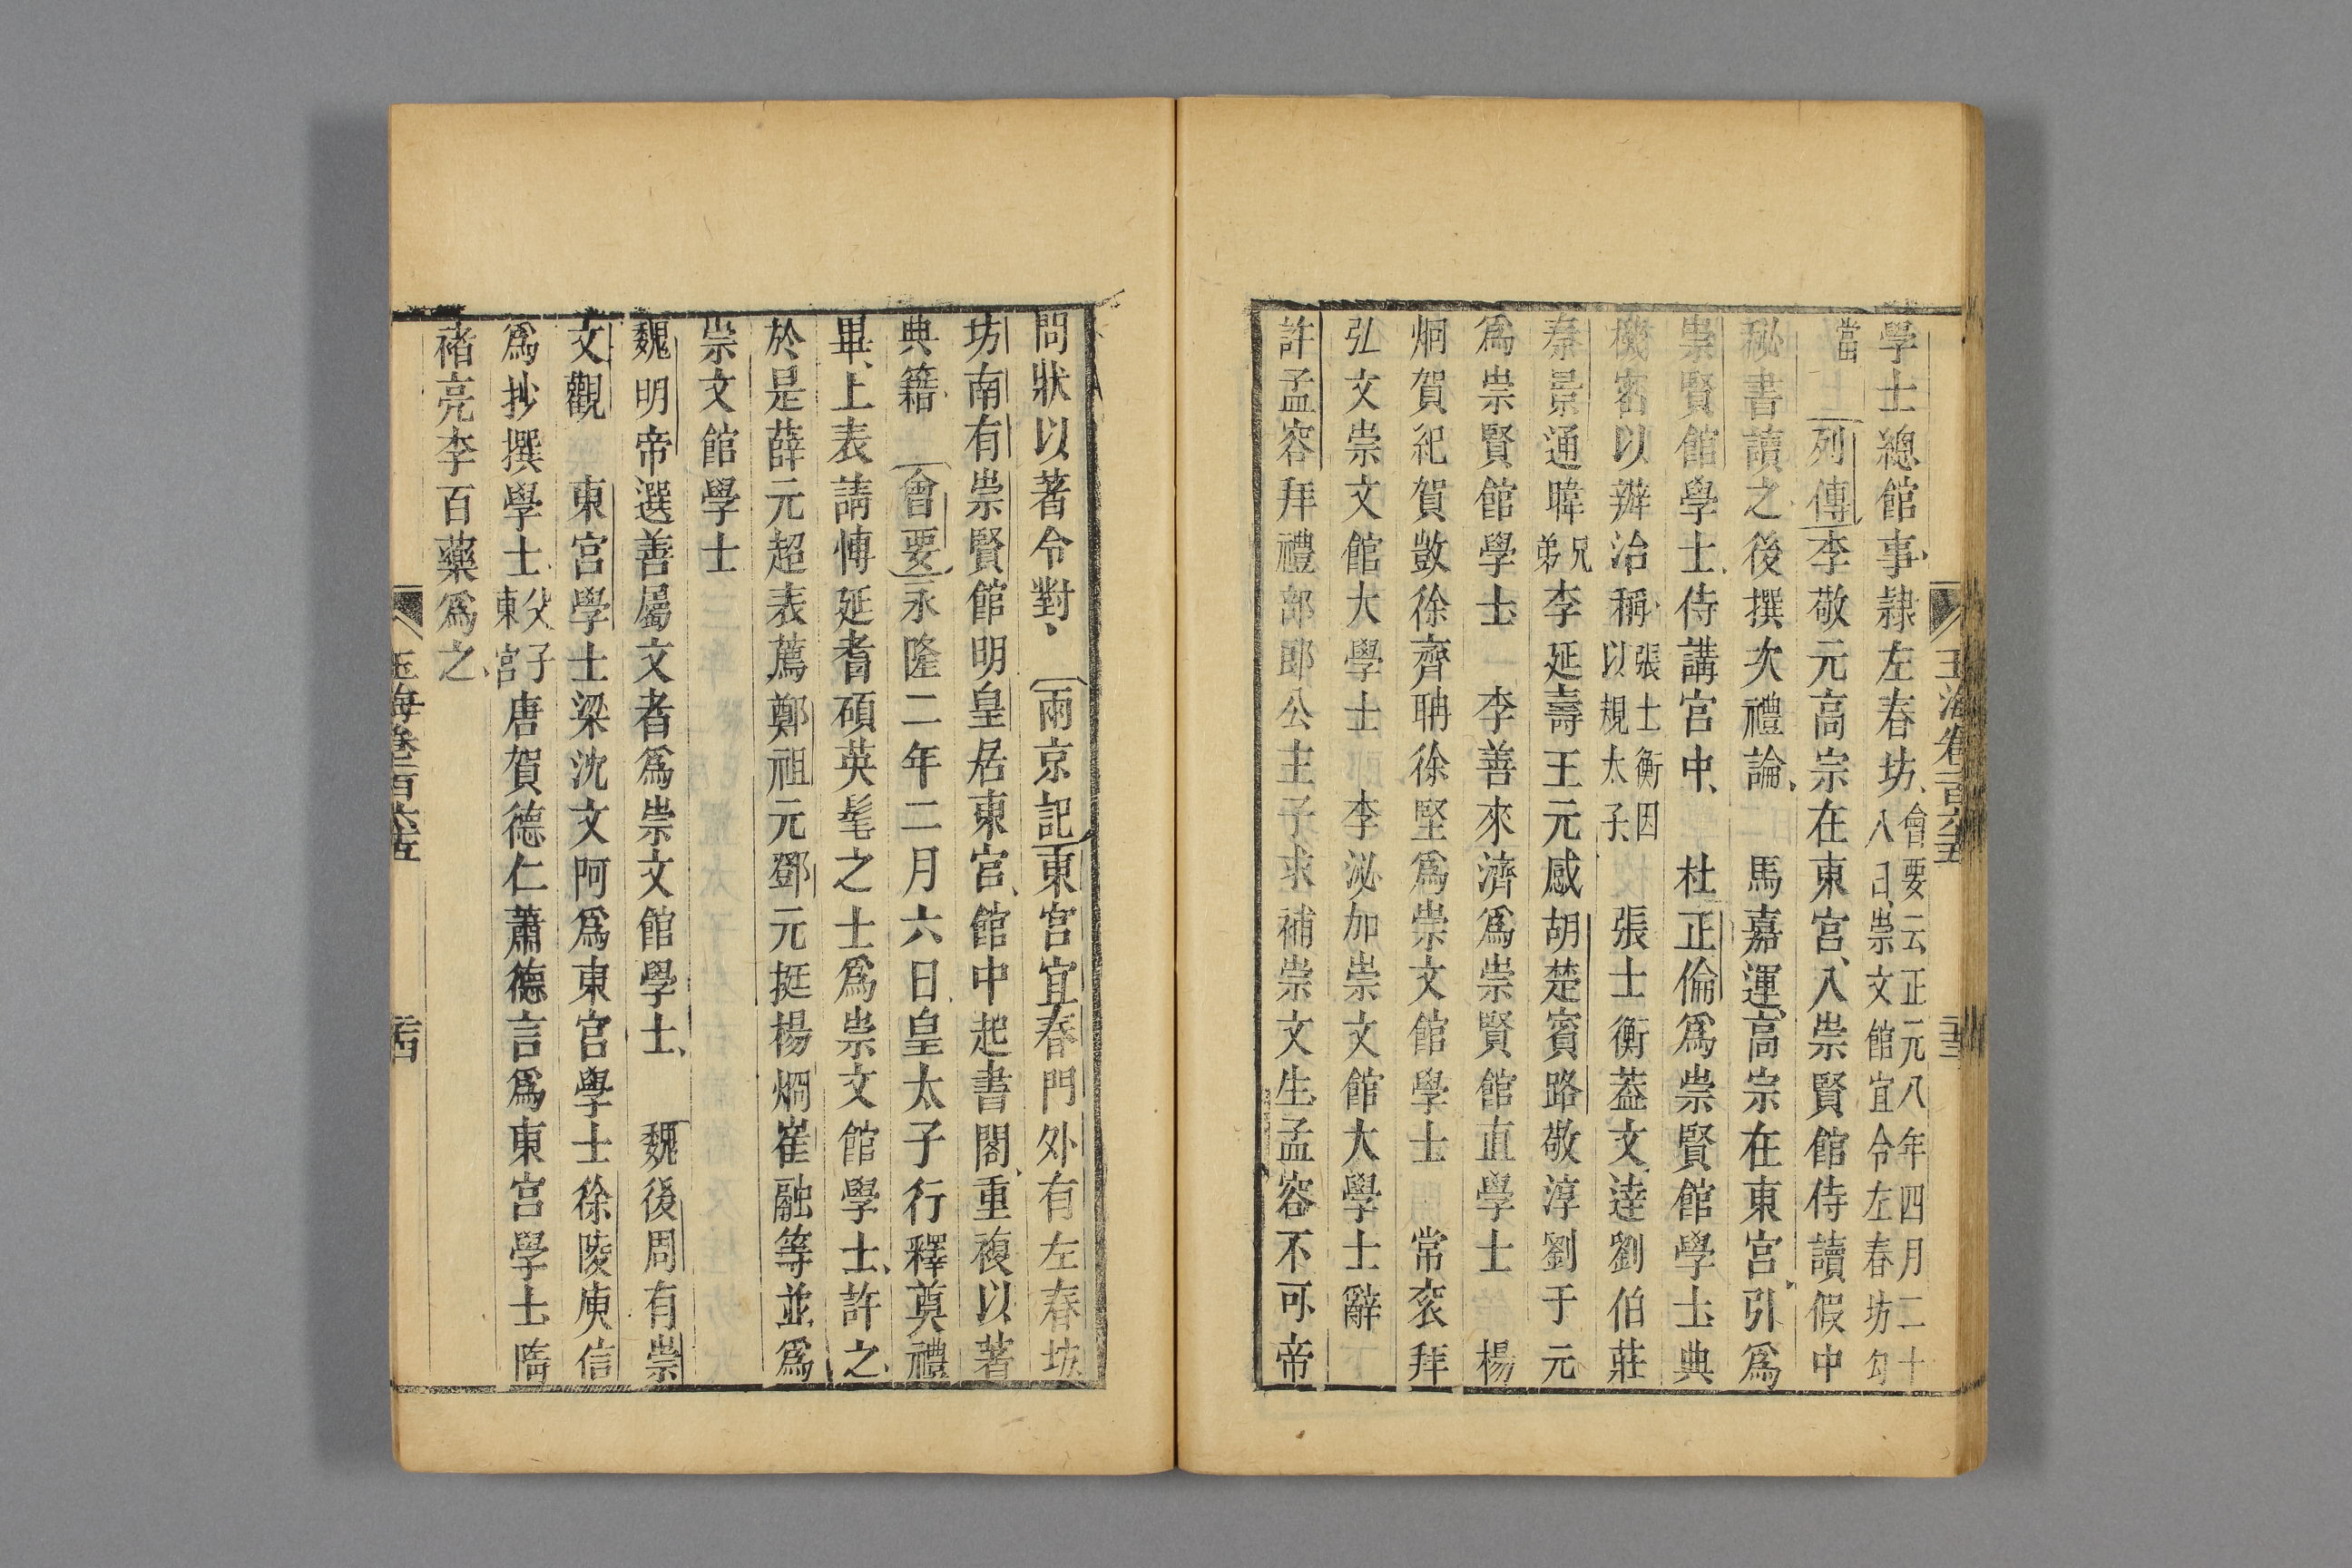 學士總館事隷左春坊會要云正元八年四月二十八日崇文館宜令左春坊勾
當 列傳李敬元高宗在東宮入崇賢館侍讀假中
秘書讀之後撰次禮論 馬嘉運高宗在東宮引爲
崇賢館學士侍講宮中 杜正倫爲崇賢館學士典
機密以辦治稱張士衡因以規太子 張士衡蓋文達劉伯莊
秦景通暐兄弟李延壽王元感胡楚賓路敬淳劉于元
爲崇賢館學士 李善來濟爲崇賢館直學士 楊
烱賀紀賀敳徐齊聃徐堅爲崇文館學士 常衮拜
弘文崇文館大學士 李泌加崇文館大學士辭
許孟容拜禮部郎公主子求補崇文生孟容不可帝
玉海卷一百六十五
二十三
問狀以著令對 兩京記東宮宜春門外有左春坊
坊南有崇賢館明皇居東宮館中起書閣重複以著
典籍 會要永隆二年二月六日皇太子行釋奠禮
畢上表請博延耆碩英髦之士爲崇文館學士許之
於是薛元超表薦鄭祖元鄧元挺楊烱崔融等並爲
崇文館學士
魏明帝選善屬文者爲崇文館學士 魏後周有崇
文觀 東宮學士梁沈文阿爲東宮學士徐陵庾信
爲抄撰學士父子東宮唐賀德仁蕭德言爲東宮學士隋
褚亮李百藥爲之
玉海卷一百六十五
二十四